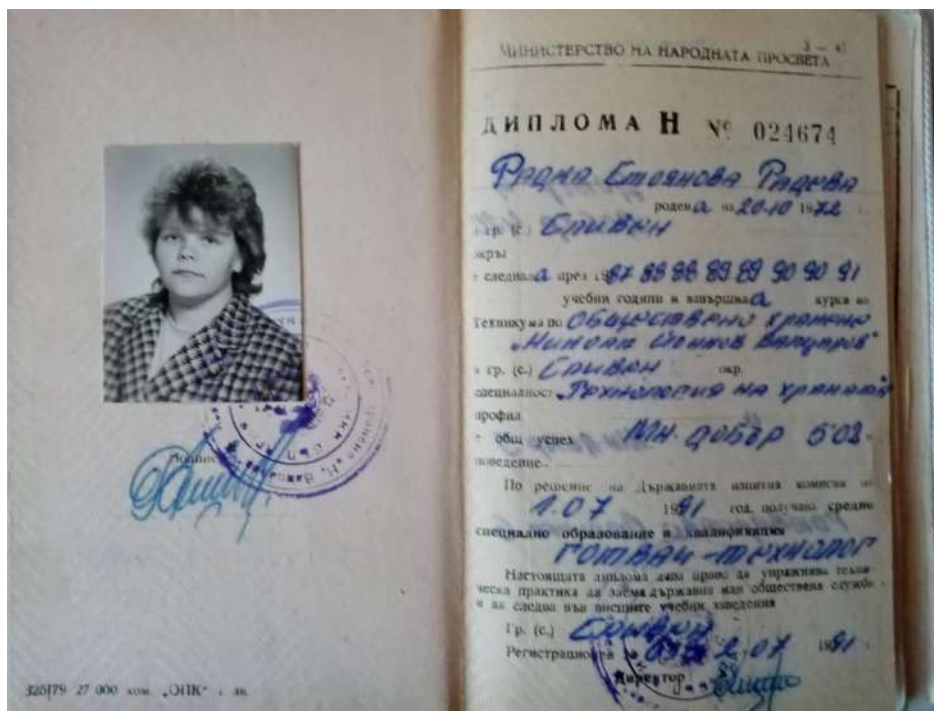 Подпис
325|79 27 000 ком. „ОПК"
3 — 4
МИНИСТЕРСТВО НА НАРОДНАТА ПРОСВЕТА
ДИПЛОМА Н № 024674
Радка Стоянова Радева
родена на 20.10 1972 г.
гр. (с.) Сливен
окръг
следвала през 1987 88 88 89 89 90 90 91
учебни години и завършила курса на
Техникума по Обществено хранене
„Никола Йонков Вапцаров"
в гр. (с.) Сливен окр.
специалност Технология на храната
профил
с общ успех Мн. добър 5.02
поведение
По решение на Държавната изпитна комисия от
1.07 1991 год. получава средно
специално образование и квалификация
готвач - технолог
Настоящата диплома дава право да упражнява техни-
ческа практика да заема държавна или обществена служба
и да следва във висшите учебни заведения
Гр. (с.) Сливен
Регистрационен 2.07 1991 г.
Директор